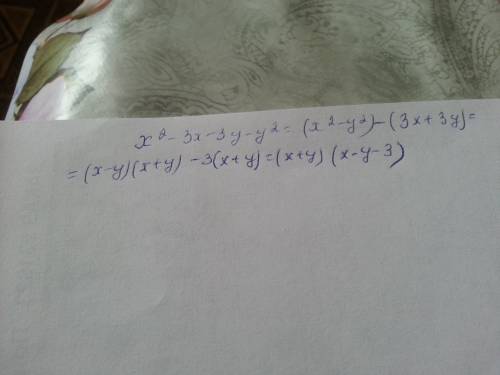 x² - 3x - 3y - y² = (x² - y²) - (3x + 3y) =
= (x-y)(x+y) - 3(x+y) = (x+y) (x-y-3)